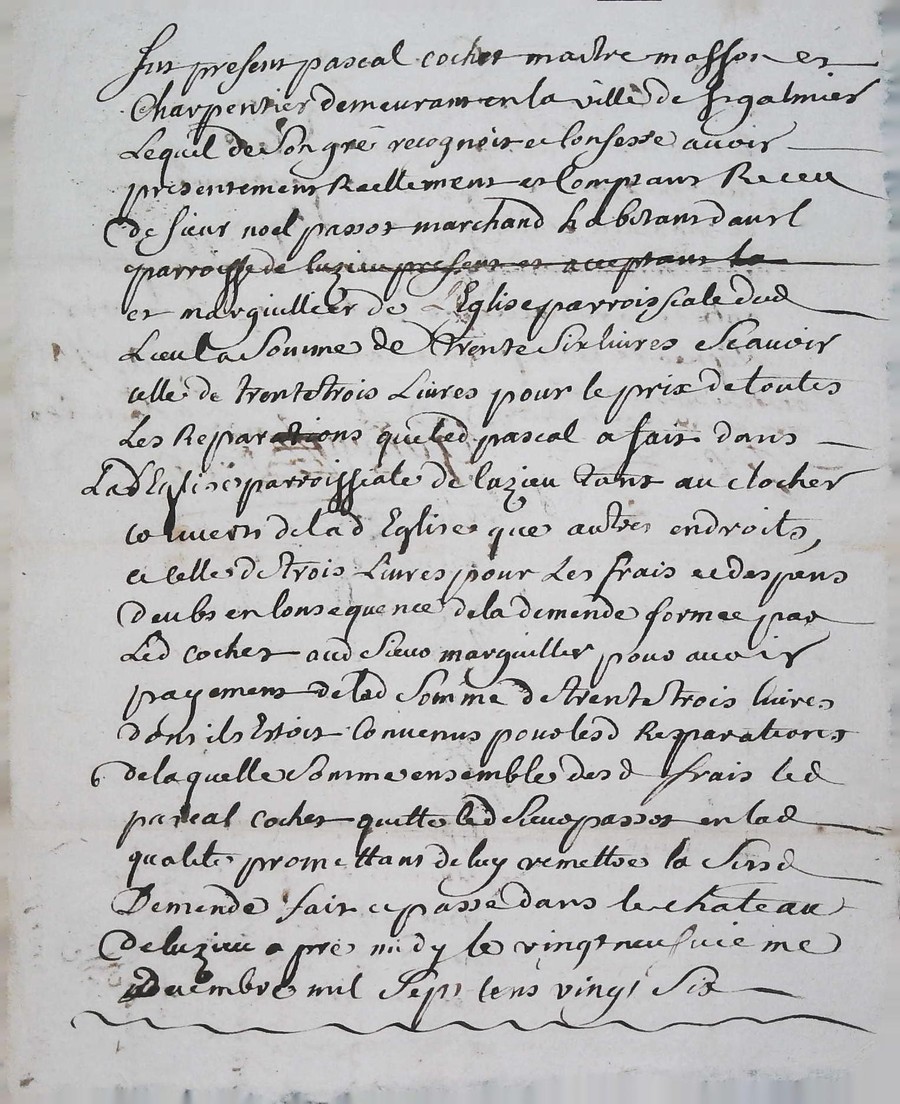 fut present pascal cochet maistre masson et
Charpentier demeurant en la ville de St galmier
Lequel de Son gré recognoit et Confesse avoir
presentement Reellement et Comptant Receu
de Sieur noel passot marchand habitant dans l
parroisse de luzieu present et acceptant la
et marguillier de L'Eglise parroissiale dud
Lieu La Somme de trente Six livres Scavoir
celle de trente trois Livres pour le prix de toutes
Les Reparations que led pascal a fait dans
Lad Eglise parroissiale de luzieu tant au clocher
couvert de lad Eglise que autres endroits,
et Celle de trois Livres pour Les frais et despens
deubs en Consequence de la demende formee par
Led cochet aud Sieur marguillier pour avoir
payement de lad Somme de trente trois livres
dont ils Estoit Convenus pour lesd Repparations
de laquelle Somme ensemble desd frais led
pascal cochet quitte led Sieur passot en lad
qualite promettant de luy remettre la Susd
Demende fait et passé dans le chateau
De luzieu apres midy le vingt neufvieme
decembre mil Sept Cens vingt Six